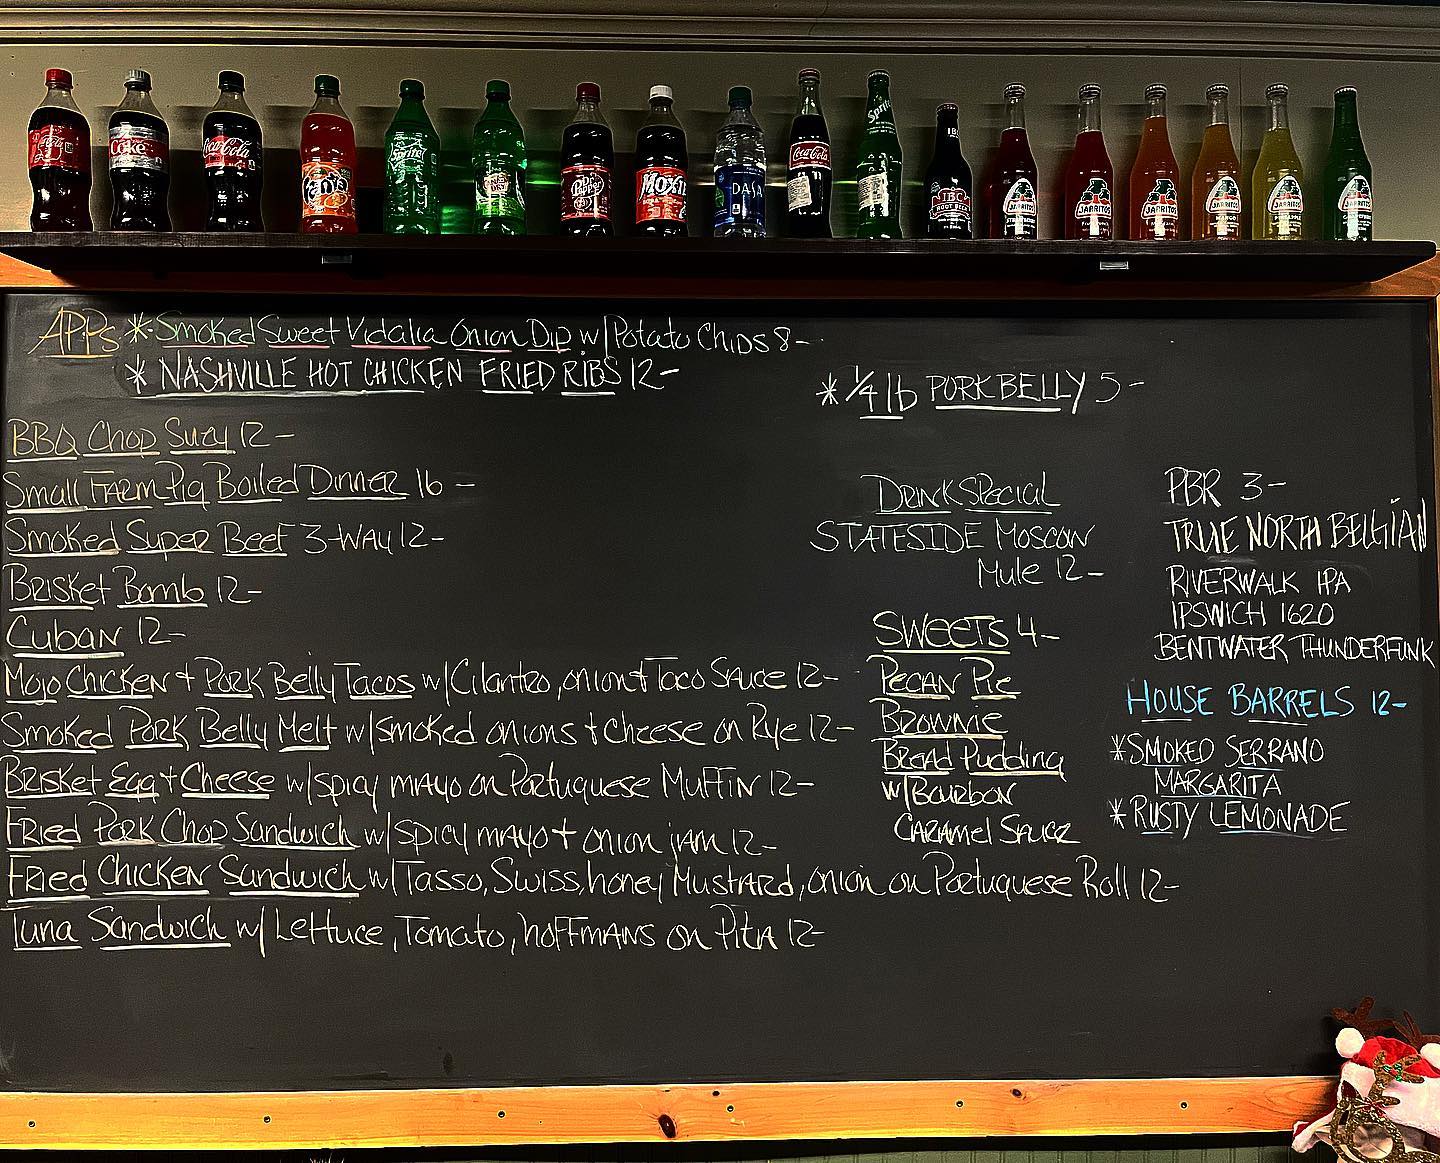 Coke
Coca-Cola
Fanta
Sprite
Dr Pepper
MOXIE
DASA
Coca-Cola
Sprite
IBC
IBC
ROOT BEER
JARRITOS
JARRITOS
JARRITOS
JARRITOS
JARRITOS
JARRITOS
APPs * Smoked Sweet Vidalia Onion Dip w/Potato Chips 8-
* NASHVILLE HOT CHICKEN FRIED RIBS 12-
* 1/4 lb PORK BELLY 5-
BBQ Chop Suey 12-
Small Farm Pig Boiled Dinner 16-
Smoked Super Beef 3-WAY 12-
Brisket Bomb 12-
Cuban 12-
Mojo Chicken + Pork Belly Tacos w/Cilantro, onion + Taco Sauce 12-
Smoked Pork Belly Melt w/smoked onions + cheese on Rye 12-
Brisket Egg + Cheese w/spicy mayo on Portuguese Muffin 12-
Fried Pork Chop Sandwich w/spicy mayo + onion jam 12-
Fried Chicken Sandwich w/Tasso, Swiss, honey Mustard, onion on Portuguese Roll 12-
Tuna Sandwich w/ Lettuce, Tomato, hoffmans on Pita 12-
Drink Special
STATESIDE MOSCOW
Mule 12-
SWEETS 4-
Pecan Pie
Brownie
Bread Pudding
w/Bourbon
Caramel Sauce
PBR 3-
TRUE NORTH BELGIAN
RIVERWALK IPA
IPSWICH 1620
BENTWATER THUNDERFUNK
HOUSE BARRELS 12-
*SMOKED SERRANO
MARGARITA
*RUSTY LEMONADE